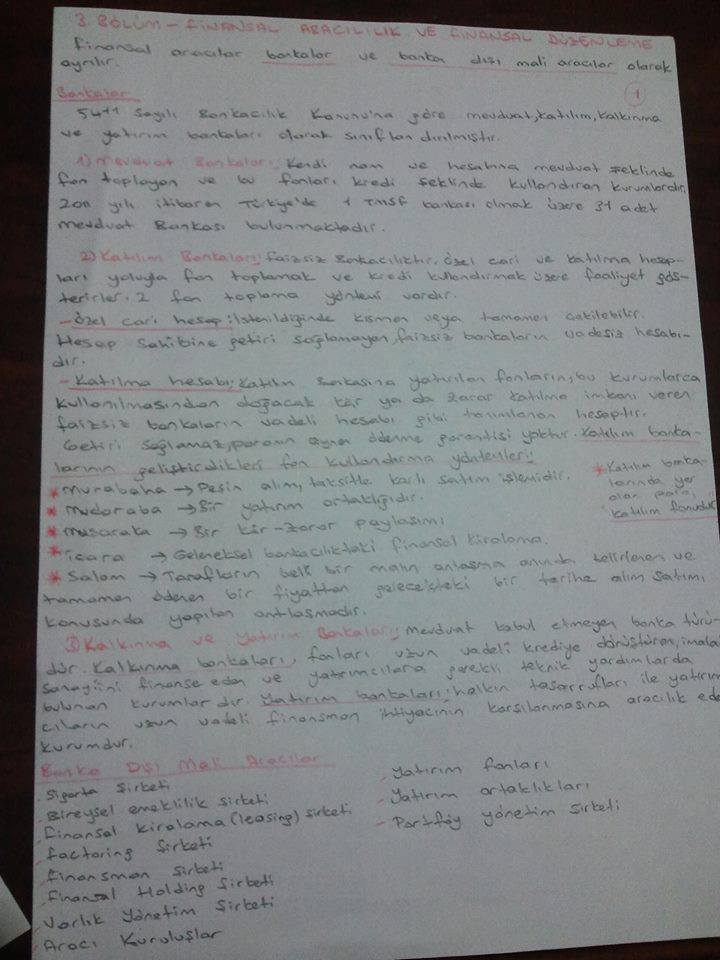 3. BÖLÜM - FİNANSAL ARACILILIK VE FİNANSAL DÜZENLEME
Finansal aracılar bankalar ve banka dışı mali aracılar olarak
ayrılır.
1
Bankalar
5411 Sayılı Bankacılık Kanunu'na göre mevduat, katılım, kalkınma
ve yatırım bankaları olarak sınıflandırılmıştır.
1) Mevduat Bankaları; Kendi nam ve hesabına mevduat şeklinde
fon toplayan ve bu fonları kredi şeklinde kullandıran kurumlardır.
2011 yılı itibaren Türkiye'de 1 TMSF bankası olmak üzere 31 adet
mevduat Bankası bulunmaktadır.
2) Katılım Bankaları; faizsiz Bankacılıktır. Özel cari ve katılma hesap-
ları yoluyla fon toplamak ve kredi kullandırmak üzere faaliyet gös-
terirler. 2 fon toplama yöntemi vardır.
- Özel cari hesap; İstenildiğinde kısmen veya tamamen çekilebilir.
Hesap sahibine getiri sağlamayan, faizsiz bankaların vadesiz hesabı-
dır.
- Katılma hesabı; Katılım Bankasına yatırılan fonların, bu kurumlarca
kullanılmasından doğacak kâr ya da zarar katılma imkanı veren
faizsiz bankaların vadeli hesabı gibi tanımlanan hesaptır.
Getiri sağlamaz, paranın aynen ödenme garantisi yoktur. Katılım banka-
larının geliştirdikleri fon kullandırma yöntemleri;
* Murabaha → Peşin alım, taksitle karlı satım işlemidir.
* Mudaraba → Bir yatırım ortaklığıdır.
* Musaraka → Bir kâr-zarar paylaşımı
* İcara → Geleneksel bankacılıktaki finansal kiralama.
* Salam → Tarafların belli bir malın anlaşma anında belirlenen ve
tamamen ödenen bir fiyattan gelecekteki bir tarihe alım satımı
konusunda yapılan antlaşmadır.
* Katılım banka-
larında yer
alan para,
katılım fonudur
3) Kalkınma ve Yatırım Bankaları; mevduat kabul etmeyen banka türü-
dür. Kalkınma bankaları, fonları uzun vadeli krediye dönüştüren, imala
sanayiini finanse eden ve yatırımcılara gerekli teknik yardımlarda
bulunan kurumlardır. Yatırım bankaları; halkın tasarrufları ile yatırım
cıların uzun vadeli finansman ihtiyacının karşılanmasına aracılık ede
kurumdur.
Banka Dışı Mali Aracılar
- Sigorta Şirketi
- Bireysel emeklilik şirketi
- Finansal kiralama (leasing) şirketi
- factoring şirketi
- finansman şirketi
- finansal Holding şirketi
- Varlık Yönetim Şirketi
- Aracı Kuruluşlar
- Yatırım fonları
- Yatırım ortaklıkları
- Portföy yönetim şirketi